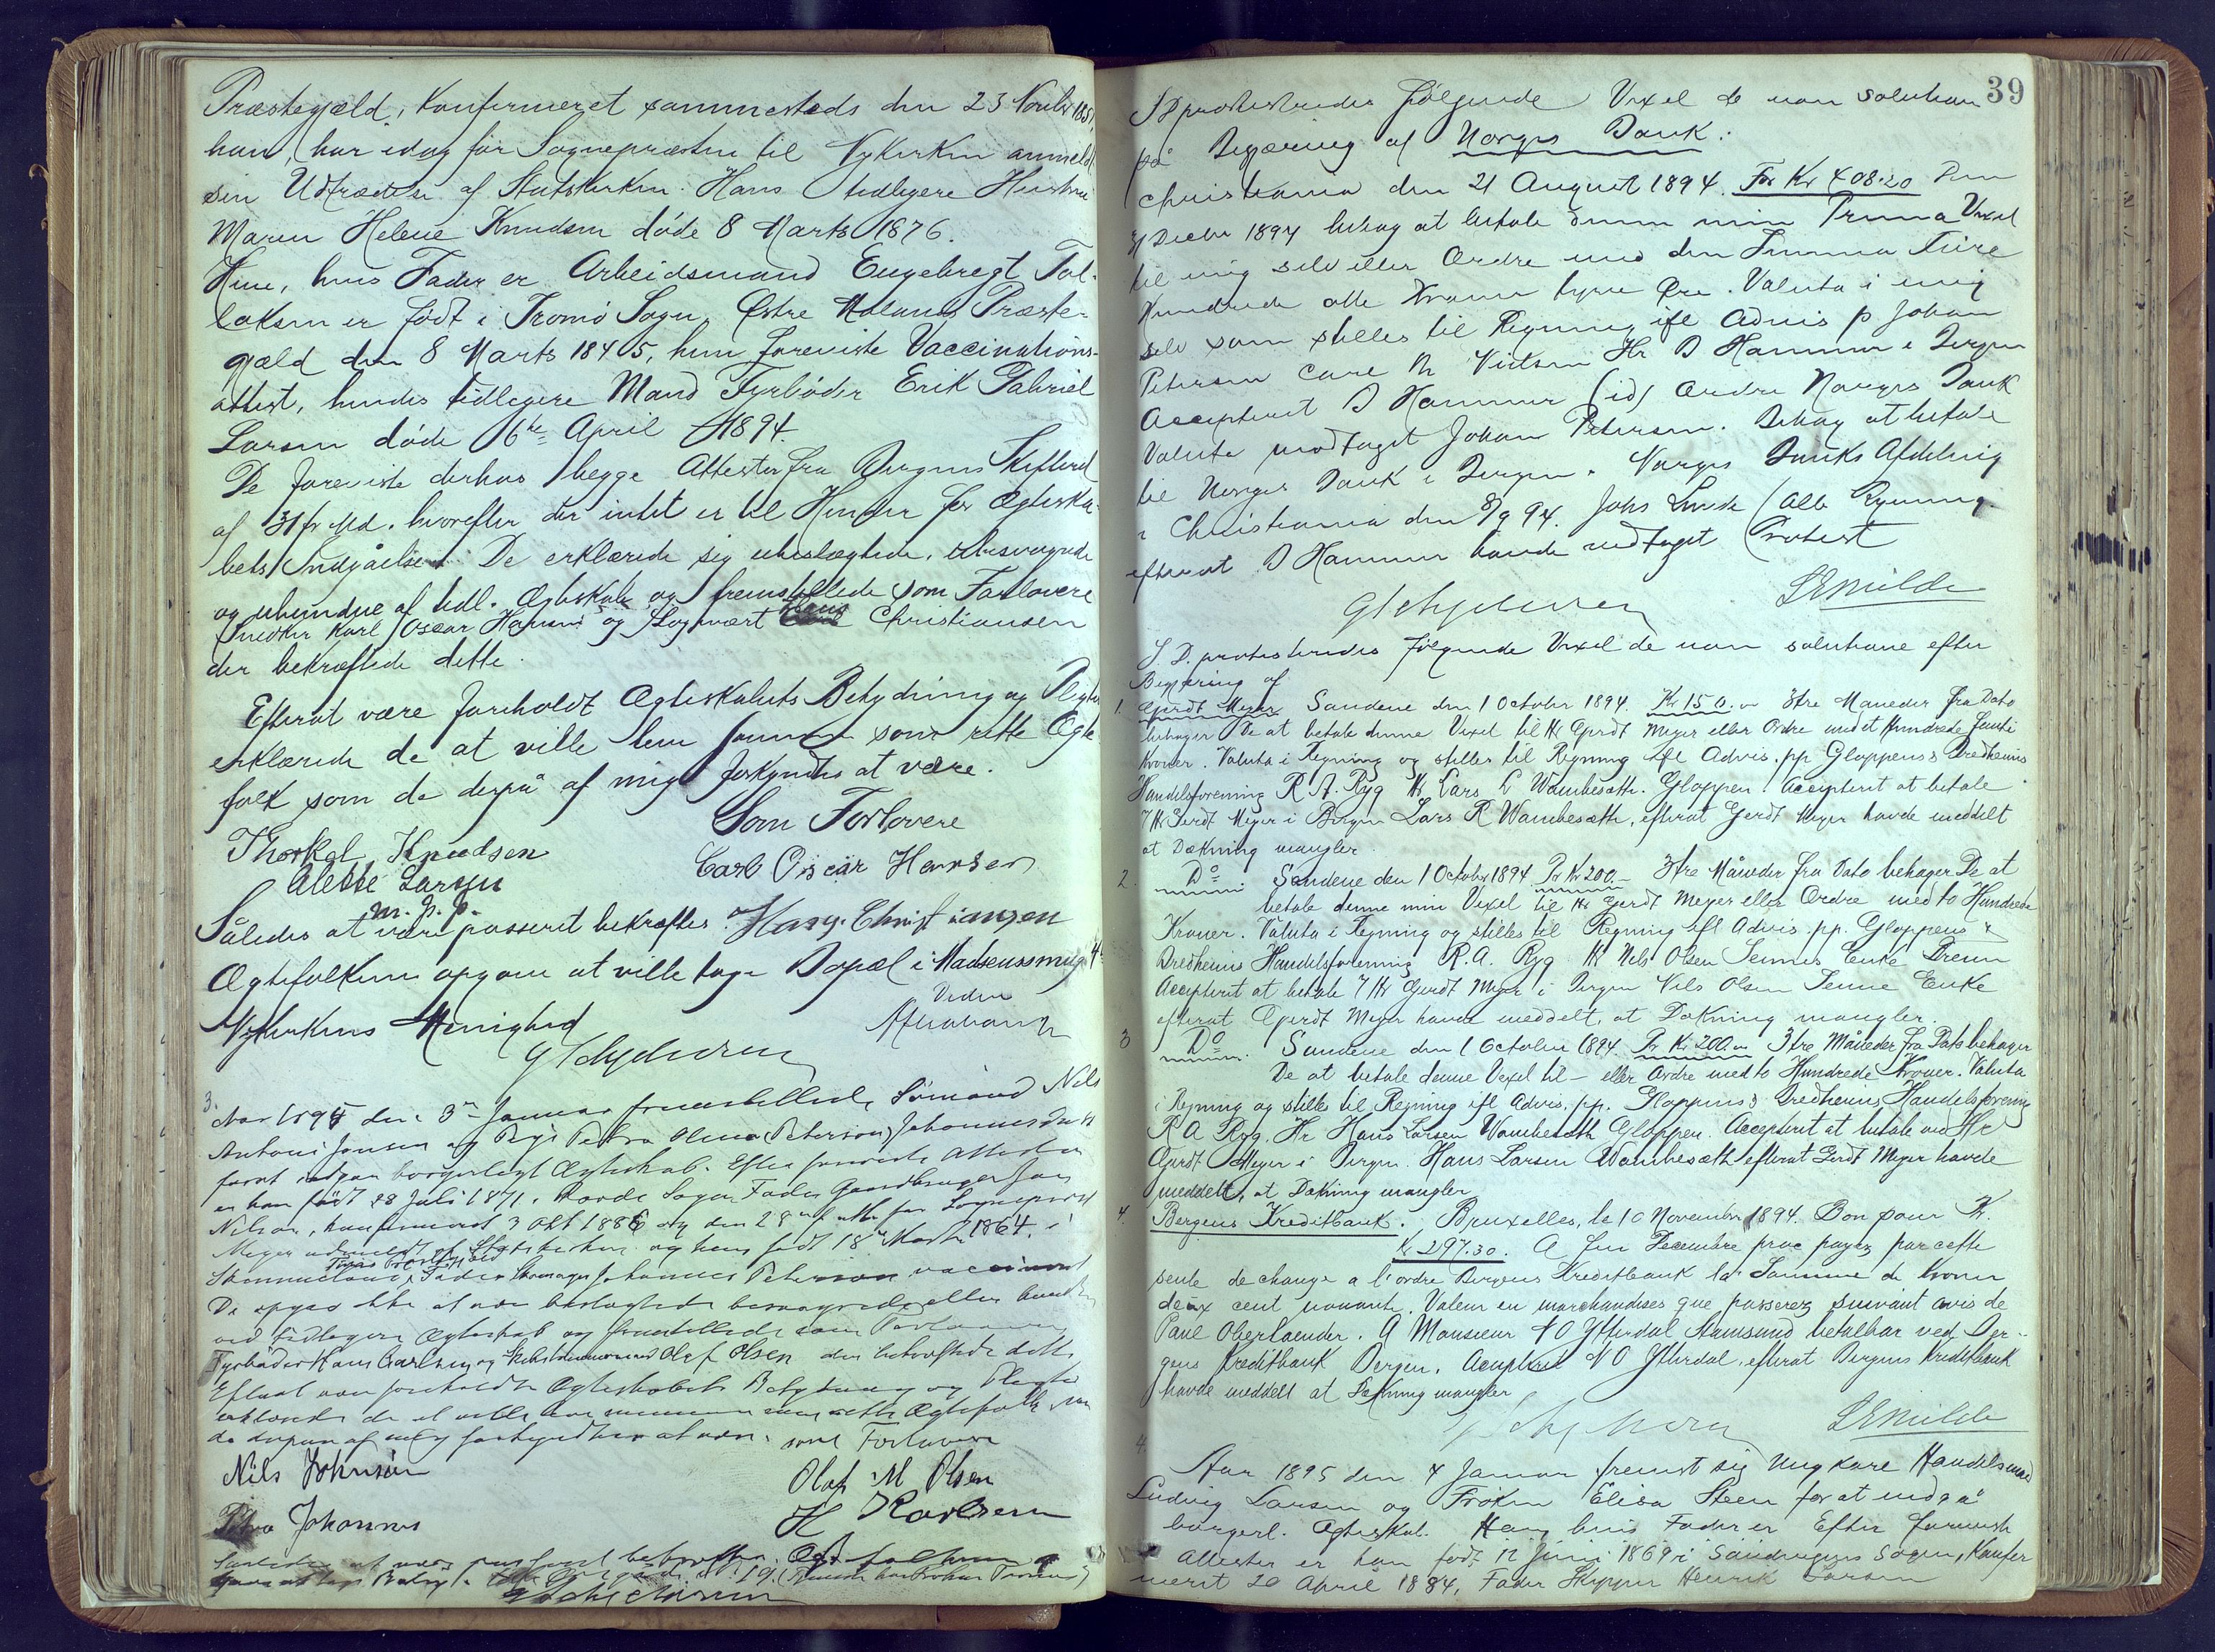 Præstegjæld, Konfirmeret sammesteds den 23 Novbr 1851,
han, har idag for Sognepræsten til Nykirken anmeldt
sin Udtrædelse af Statskirken. Hans tidligere Hustru
Maren Helene Knudsen døde 8 Marts 1876.
Hun, hvis Fader er Arbeidsmand Engebregt Tol-
laksen er født i Tromø Sogn, Østre Moland Præste-
gjæld den 8 Marts 1845, hun foreviste Vaccinations-
attest, hendes tidligere Mand Fyrbøder Erik Gabriel
Larsen døde 6te April 1894.
De foreviste derhos begge Attester fra Bergens Skifteret
af 31 f. Md. hvorefter der intet er til Hinder for Ægteska-
bets Indgåelse. De erklærede sig ubeslægtede, ubesvogrede
og uhindrede af tidl. Ægteskab og fremstillede som Forlovere
Snedker Karl Oscar Hansen og Logivært Hans Christiansen
der bekræftede dette.
Efterat være foreholdt Ægteskabets Betydning og Pligter
erklærede de at ville leve sammen som rette Ægte-
folk som de derpå af mig forkyndtes at være.
Som Forlovere
Thorkel Knudsen
Carl Oscar Hansen
Alette Larsen
m. p. p.
Således at være passeret bekræftes. Hans Christiansen
Ægtefolkene opgave at ville tage Bopæl i Madsensmug 4
Nykirkens Menighed
3.
Aar 1895 den 3de Januar fremstillede Sømand Nils
Antoni Jonsen og Pige Petra Olina (Peterson) Johannesdatt
forat indgaa borgerligt Ægteskab. Efter foreviste Attester
er han født 28 Juli 1871, Sogn, Fader Gaardbruger Jon
Nilsen, konfirmeret 3 Okt 1886 og den 28de f. for Sognepræst
Meyer udmeldt af Statskirken og hun født 18de Marts 1864 i
Fader Johannes Peterson vaccineret
De opgav ikke at være beslægtede besvogrede eller bundne
ved tidligere Ægteskab og fremstillede som Forlovere
Fyrbøder Hans Carlsen og Olaf Olsen der bekræftede dette
Efterat være foreholdt Ægteskabets Betydning og Pligter
erklærede de at ville leve sammen som rette Ægtefolk som
de derpaa af mig forkyndtes at være. som Forlovere
Nils Johnsen
Olaf M Olsen
Petra Johannes
H Karlsen
Saaledes at være passeret bekræftes. Ægtefolkene
39
S D protesteredes følgende Vexel de non solution
på Begjæring af Norges Bank:
Christiania den 21 August 1894. For Kr 408.20 Den
31 Decbr 1894 behag at betale denne min Prima Vexel
til mig selv eller Ordre med den Summa Fire
Hundrede otte Kroner tyve Øre. Valuta i mig
selv som stilles til Regning ifl Advis p Johan
Petersen Hr D Hammer i Bergen
Accepteret D Hammer (id) Ordre Norges Bank
Valuta modtaget Johan Petersen. Behag at betale
til Norges Bank i Bergen. Norges Banks Afdeling
i Christiania den 8/9 94. Johs Lunde
efterat D Hammer havde vedtaget Protest
S E Milde
S. D. protesteredes følgende Vexel de non solutione efter
Begjæring af
1. Gerdt Meyer Sandene den 1 October 1894. Kr 150.- 3tre Maneder fra Dato
behager De at betale denne Vexel til Hr Gerdt Meyer eller Ordre med et Hundrede femti
Kroner. Valuta i Regning og stilles til Regning ifl Advis. pp Gloppens & Bredheims
Handelsforening R. A. Ryg Hr Lars L Wambesæth. Gloppen. Accepteret at betale
7 Hr Gerdt Meyer i Bergen Lars R Wambesæth, efterat Gerdt Meyer havde meddelt
at Dækning mangler.
2. Do. Sandene den 1 October 1894 Pr Kr 200.- 3tre Måneder fra Dato behager De at
betale denne min Vexel til Hr Gerdt Meyer eller Ordre med to Hundrede
Kroner. Valuta i Regning og stilles til Regning ifl Advis. pp. Gloppens &
Bredheims Handelsforening R. A. Ryg. Hr Nils Olsen Enke
Accepteret at betale 7 Hr Gerdt Meyer i Bergen Nils Olsen Enke
efterat Gerdt Meyer havde meddelt, at Dækning mangler.
3 Do. Sandene den 1 October 1894. Pr Kr 200.- 3tre Måneder fra Dato behager
De at betale denne Vexel til - eller Ordre med to Hundrede Kroner. Valuta
i Regning og stilles til Regning ifl Advis. pp. Gloppens & Bredheims Handelsforening
R A Ryg. Hr Hans Larsen Wambesæth Gloppen. Accepteret at betale ved Hr
Gerdt Meyer i Bergen. Hans Larsen Wambesæth efterat Gerdt Meyer havde
meddelt, at Dækning mangler
4. Bergens Kreditbank. Bruxelles, le 10 Novembre 1894. Bon pour Kr.
Kr 297.30. A fin Decembre prox payez par cette
seule de change a l'ordre Bergens Kreditbank la Somme de Kroner
deux cent nonante. Valeur en marchandises que passerez suivant avis de
Paul Oberlaender. A Monsieur N O Ytterdal Stamsund betalbar ved Ber-
gens Kreditbank Bergen. Accepteret N O Ytterdal, efterat Bergens Kreditbank
havde meddelt at Dækning mangler
S E Milde
4.
Aar 1895 den 4 Januar fremst sig Ungkarl Handelsmand
Ludvig Larsen og Frøken Elisa Steen for at indgå
borgerl. Ægteskab. Han, hvis Fader er Efter foreviste
Attester er han født 12 Juni 1869 i Sogn, Konfir
meret 20 April 1884, Fader Skipper Henrik Larsen